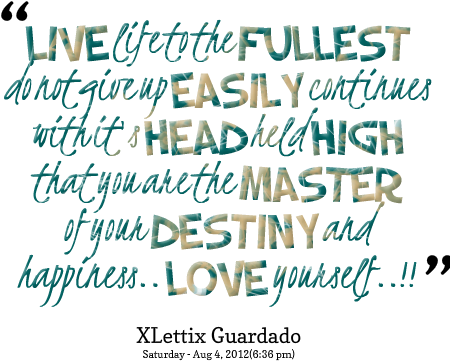 “
LIVE life to the FULLEST
do not give up EASILY continues
with it's HEAD held HIGH
that you are the MASTER
of your DESTINY and
happiness.. LOVE yourself..!!
”
XLettix Guardado
Saturday - Aug 4, 2012(6:36 pm)